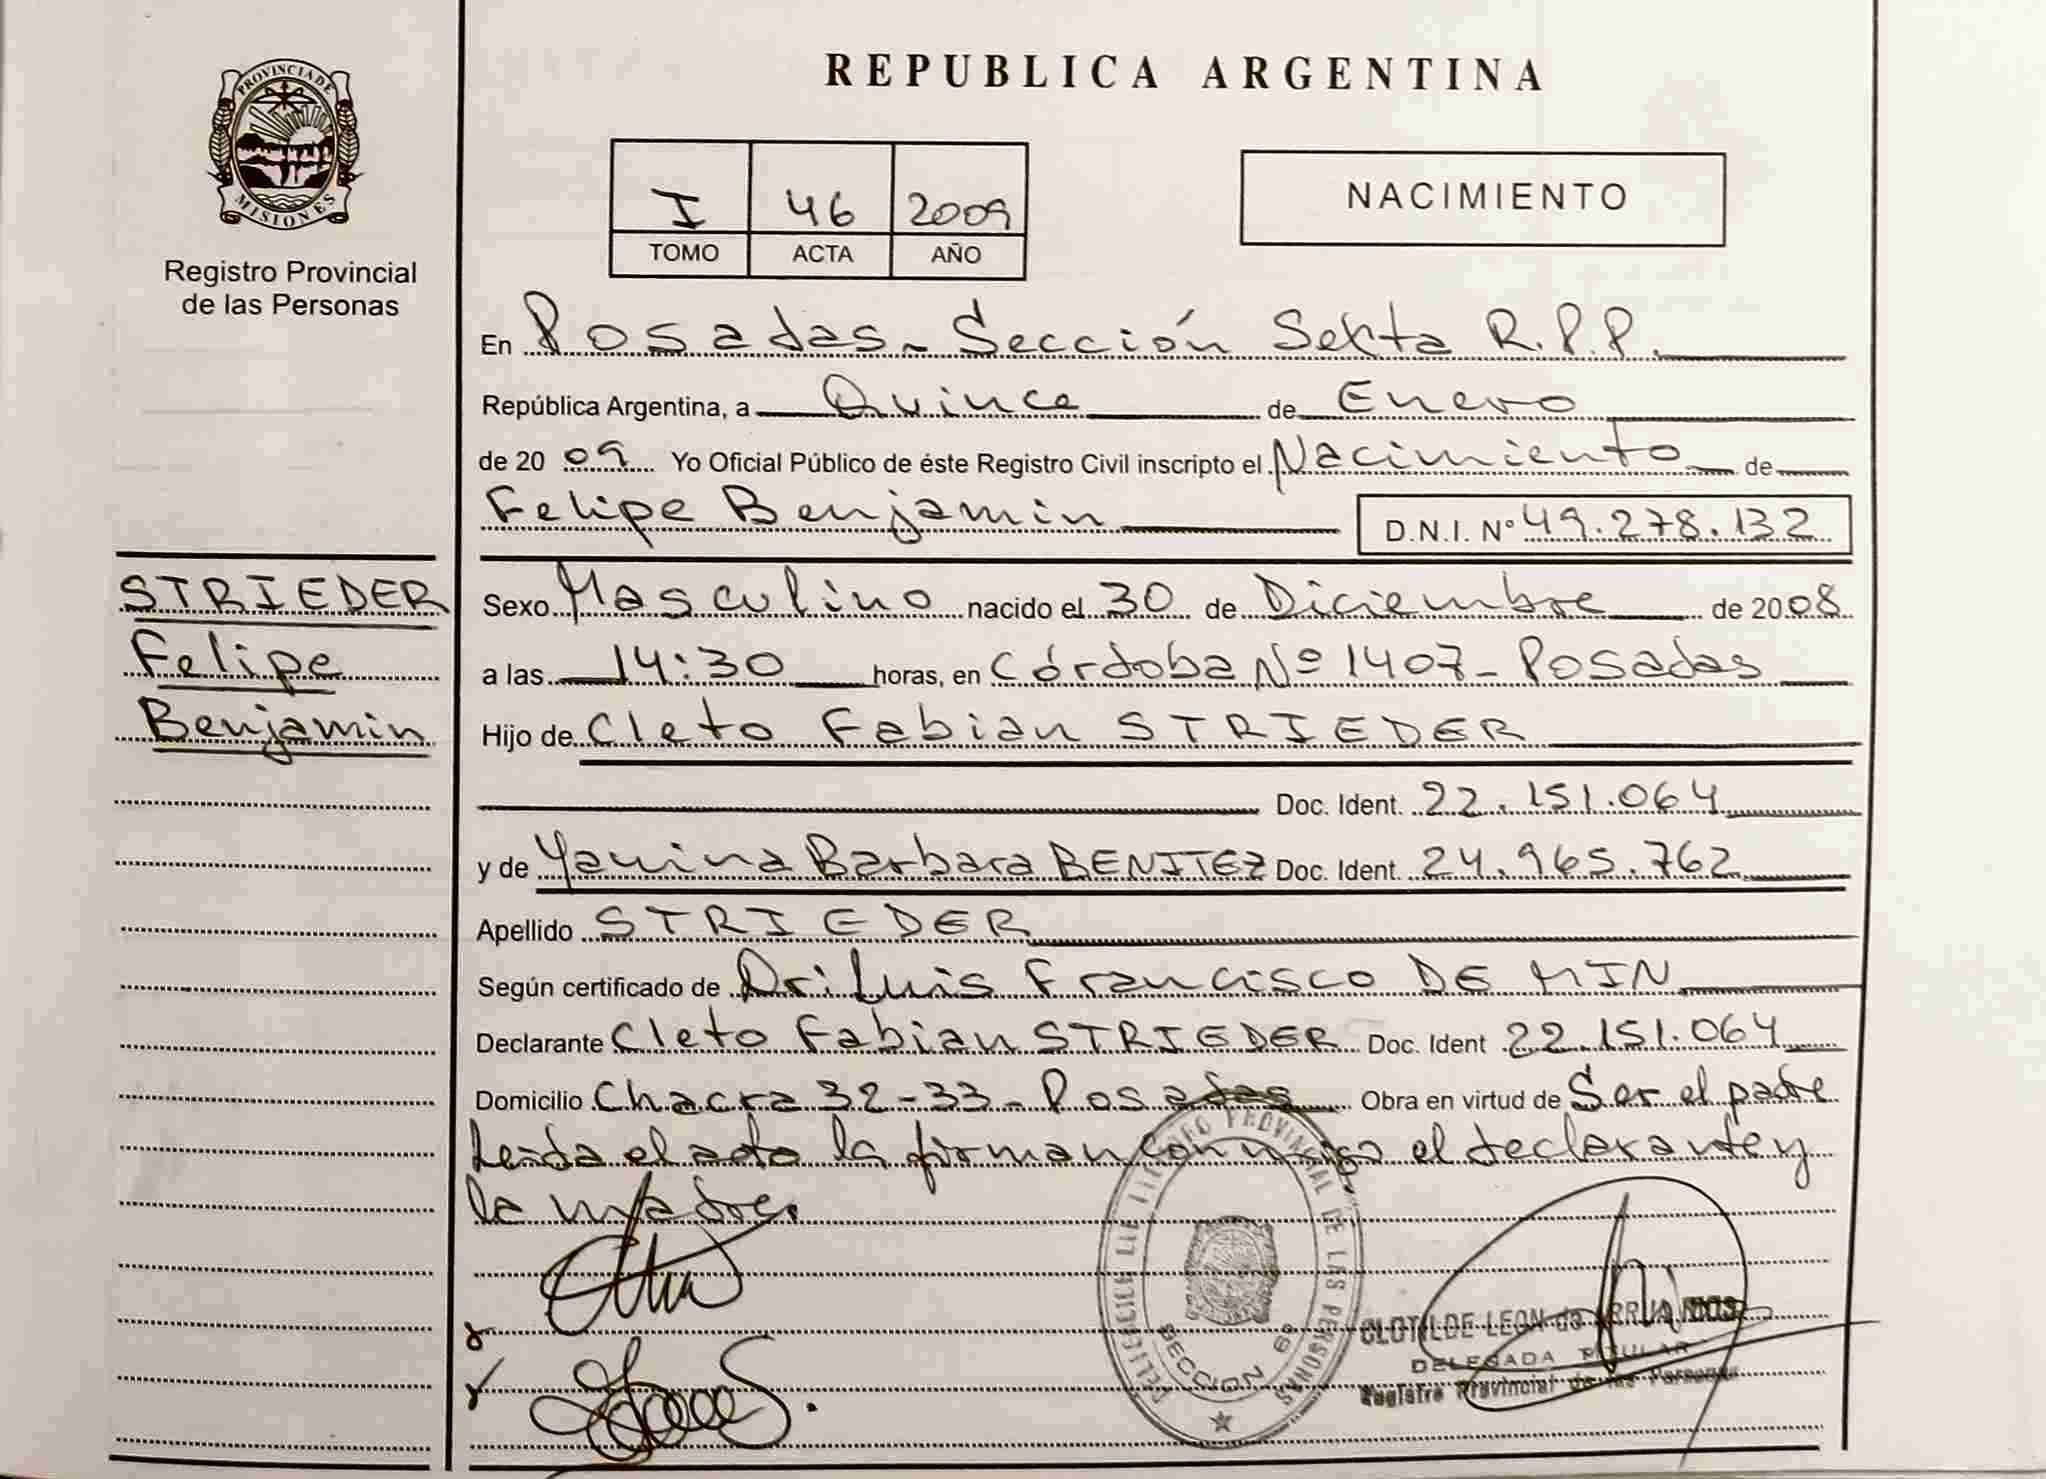 PROVINCIA DE
MISIONES
Registro Provincial
de las Personas
REPUBLICA ARGENTINA
I 46 2009
TOMO ACTA AÑO
NACIMIENTO
En Posadas - Sección Sexta R.P.P.
República Argentina, a Quince de Enero
de 20 09 Yo Oficial Público de éste Registro Civil inscripto el Nacimiento de
Felipe Benjamin D.N.I. Nº 49.278.132
STRIEDER
Felipe
Benjamin
Sexo Masculino nacido el 30 de Diciembre de 2008
a las 14:30 horas, en Córdoba Nº 1407 - Posadas
Hijo de Cleto Fabian STRIEDER
Doc. Ident. 22.151.064
y de Yanina Barbara BENITEZ Doc. Ident. 24.965.762
Apellido STRIEDER
Según certificado de Dr: Luis Francisco DE MIN
Declarante Cleto Fabian STRIEDER Doc. Ident 22.151.064
Domicilio Chacra 32-33 - Posadas Obra en virtud de Ser el padre
Leida el acta la firman conmigo el declarante y
la madre.
REGISTRO PROVINCIAL DE LAS PERSONAS
SECCION 6ª
CLOTILDE LEON de
DELEGADA TITULAR
Registro Provincial de las Personas